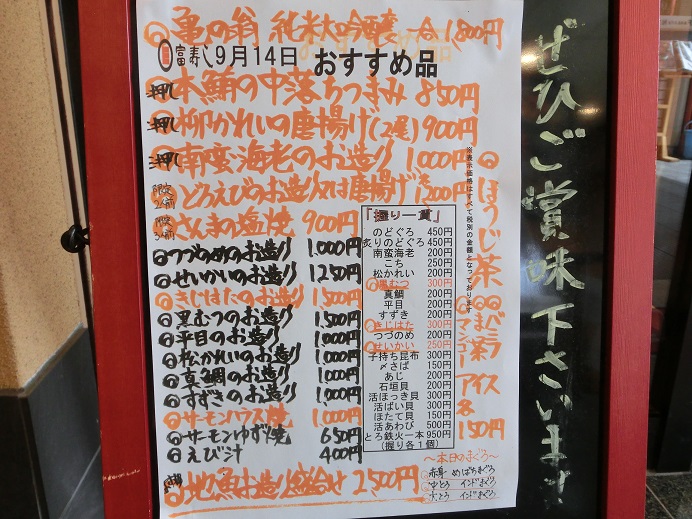 亀の翁 純米大吟醸 一合 1,800円
富寿し 9月14日 おすすめ品
押し 本鮪の中落ちつまみ 850円
押し 柳かれいの唐揚げ(2尾) 900円
押し 南蛮海老のお造り 1,000円
限定2人前 どろえびのお造り又は唐揚げ 1,200円
限定3人前 さんまの塩焼 900円
つづのめのお造り 1,000円
せいかいのお造り 1250円
きじはたのお造り 1,500円
黒むつのお造り 1,500円
平目のお造り 1,000円
松かれいのお造り 1,000円
真鯛のお造り 1,000円
すずきのお造り 1,000円
サーモンハラス焼 1,000円
サーモンゆず焼 650円
えび汁 400円
地魚お造り盛合せ 2,500円
「握り一貫」
のどぐろ 450円
炙りのどぐろ 450円
南蛮海老 200円
こち 250円
松かれい 200円
黒むつ 300円
真鯛 200円
平目 200円
すずき 200円
きじはた 300円
つづのめ 200円
せいかい 250円
子持ち昆布 300円
〆さば 150円
あじ 200円
石垣貝 200円
活ほっき貝 300円
活ばい貝 300円
ほたて貝 150円
活あわび 500円
とろ鉄火一本 950円
(握り各1個)
※表示価格はすべて税別の金額となっております
～本日のまぐろ～
赤身 めばちまぐろ
中とろ インドまぐろ
大とろ インドまぐろ
ほうじ茶
バニラ
アイス
各
150円
ぜひご賞味下さいませ